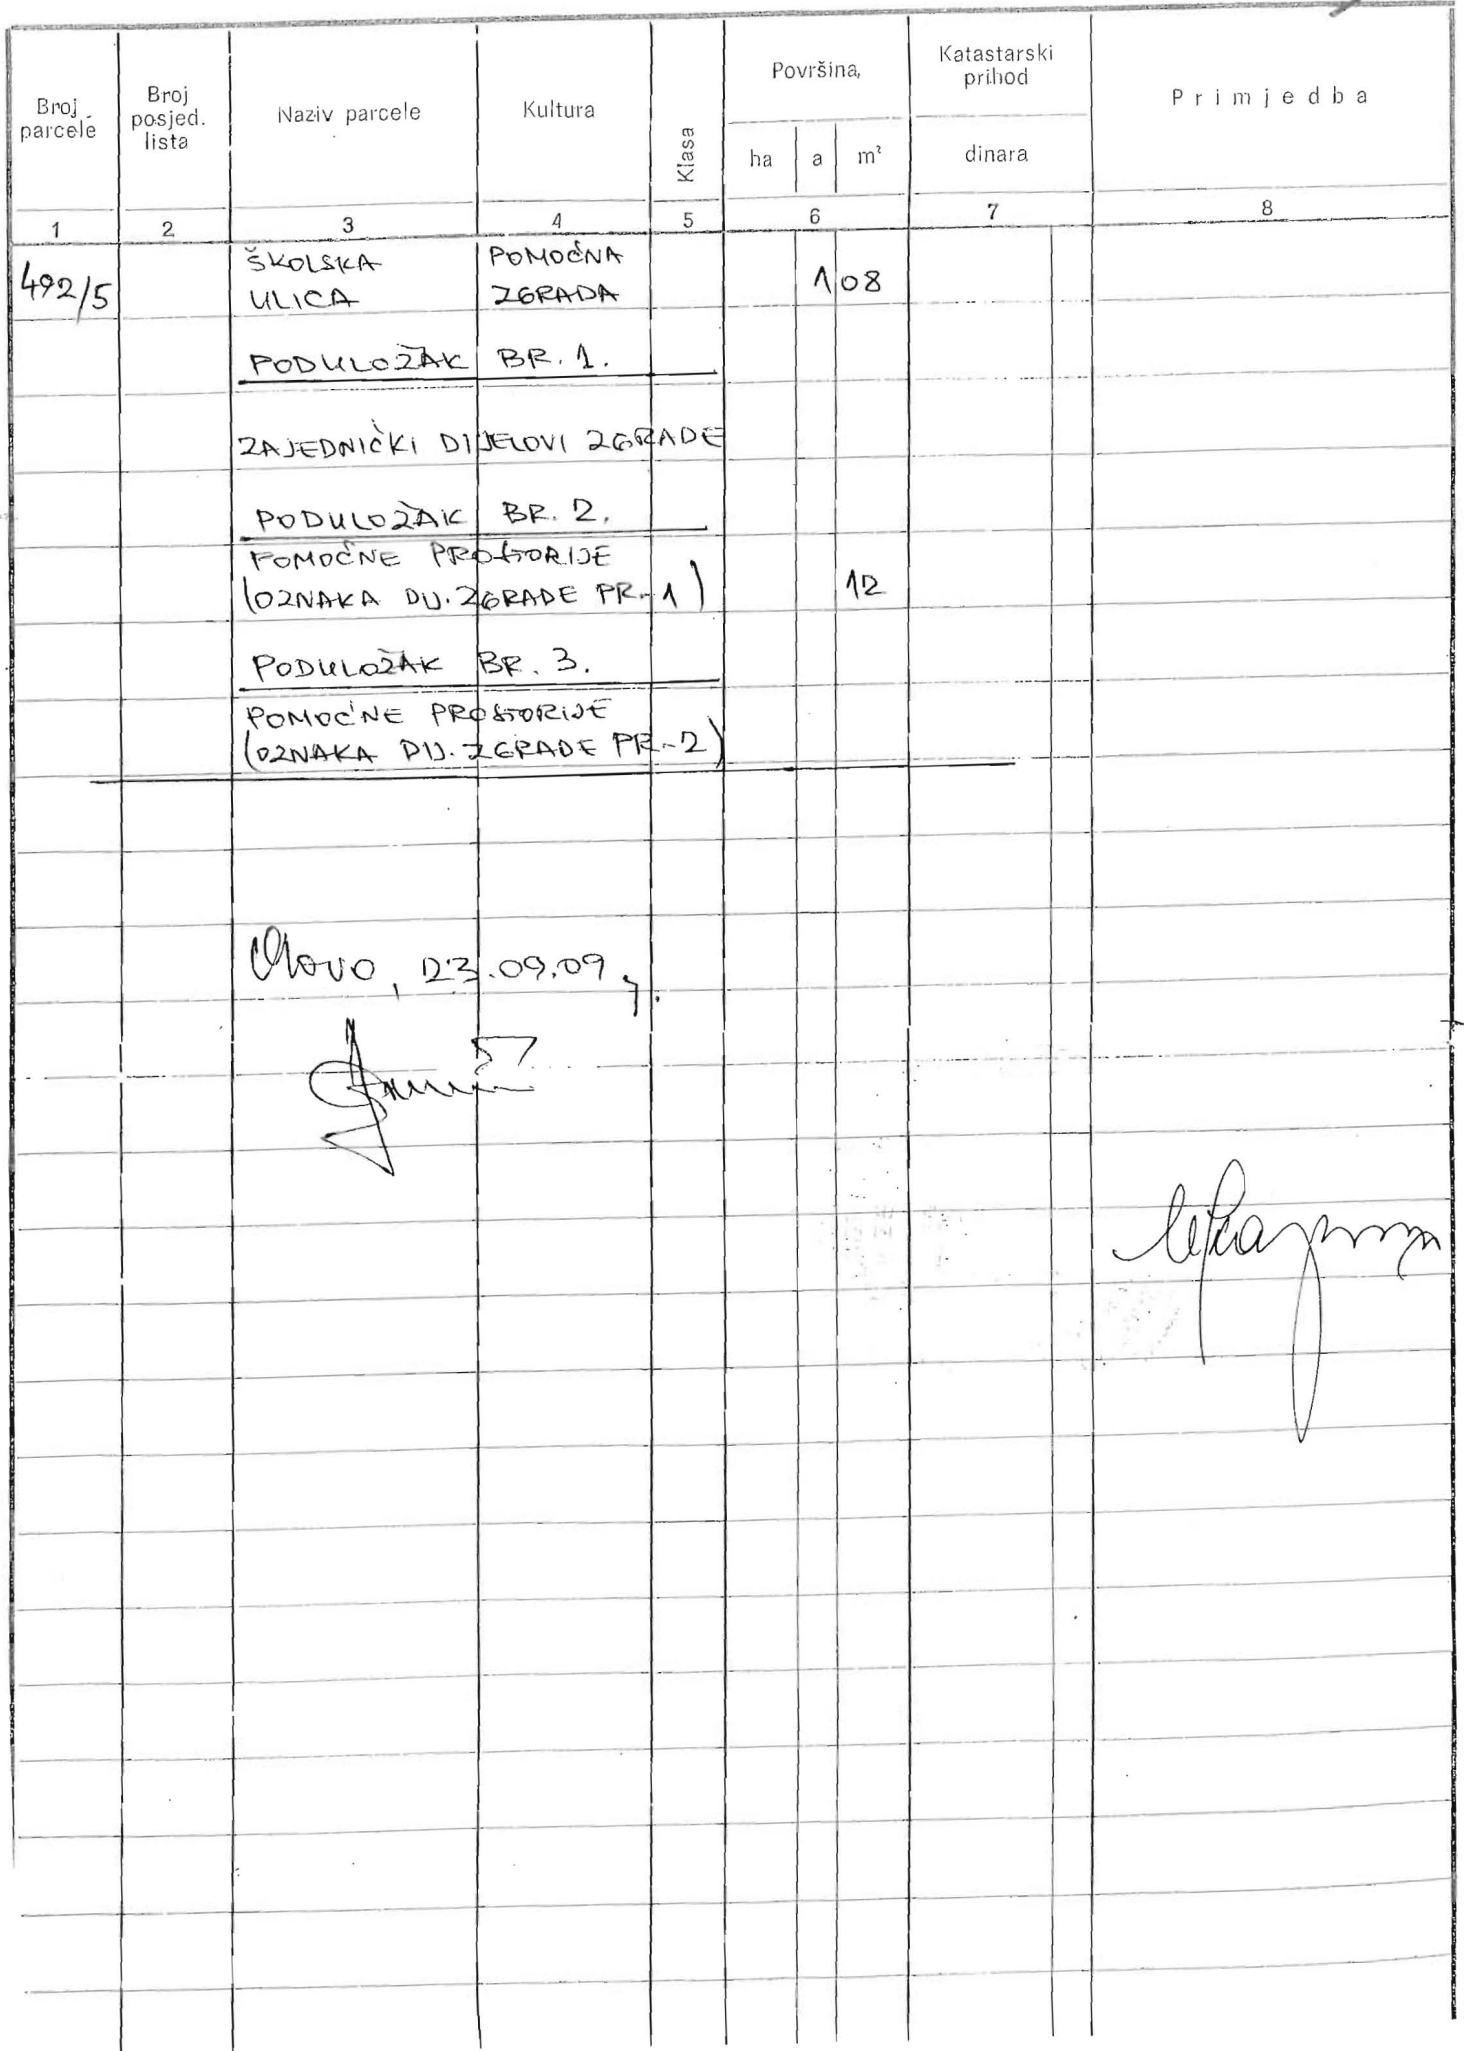 Broj parcele
Broj posjed. lista
Naziv parcele
Kultura
Klasa
Površina,
ha a m²
Katastarski prihod
dinara
Primjedba
1 2 3 4 5 6 7 8
492/5 ŠKOLSKA POMOĆNA 1 08
ULICA ZGRADA
PODULOŽAK BR. 1.
ZAJEDNIČKI DIJELOVI ZGRADE
PODULOŽAK BR. 2.
POMOĆNE PROSTORIJE
(OZNAKA DIJ. ZGRADE PR-1) 12
PODULOŽAK BR. 3.
POMOĆNE PROSTORIJE
(OZNAKA DIJ. ZGRADE PR-2)
Olovo, 23.09.09 g.